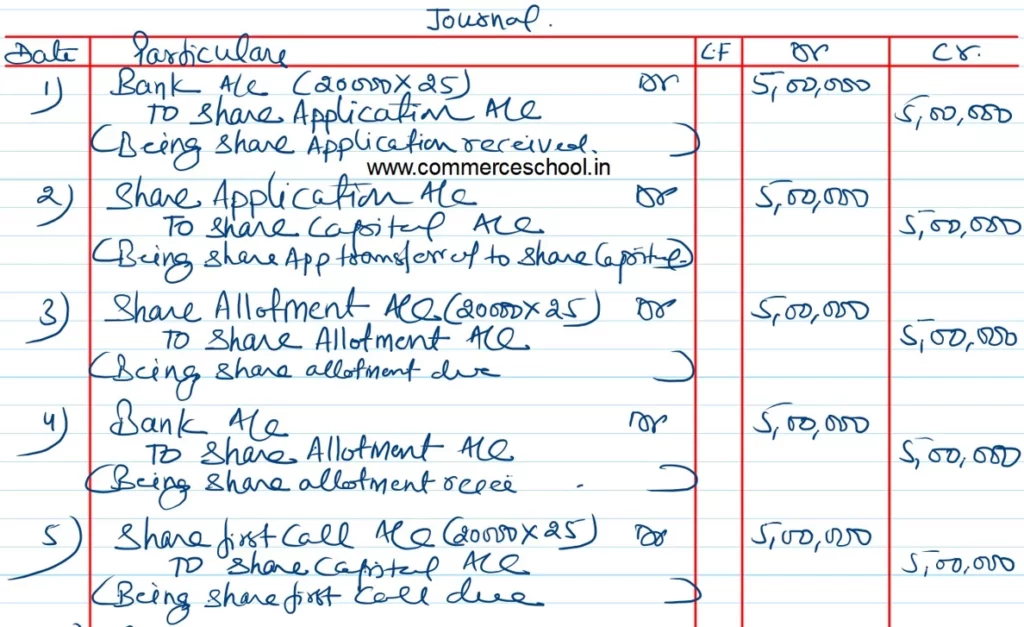 Journal.
Date Particulars L.F Dr Cr.
1) Bank A/c (20000 X 25) Dr 5,00,000
To Share Application A/c 5,00,000
(Being Share Application received.)
www.commerceschool.in
2) Share Application A/c Dr 5,00,000
To Share Capital A/c 5,00,000
(Being Share App transferred to Share Capital)
3) Share Allotment A/c (20000 X 25) Dr 5,00,000
To Share Allotment A/c 5,00,000
(Being Share allotment due)
4) Bank A/c Dr 5,00,000
To Share Allotment A/c 5,00,000
(Being Share allotment recei . )
5) Share first Call A/c (20000 X 25) Dr 5,00,000
To Share Capital A/c 5,00,000
(Being Share first Call due)